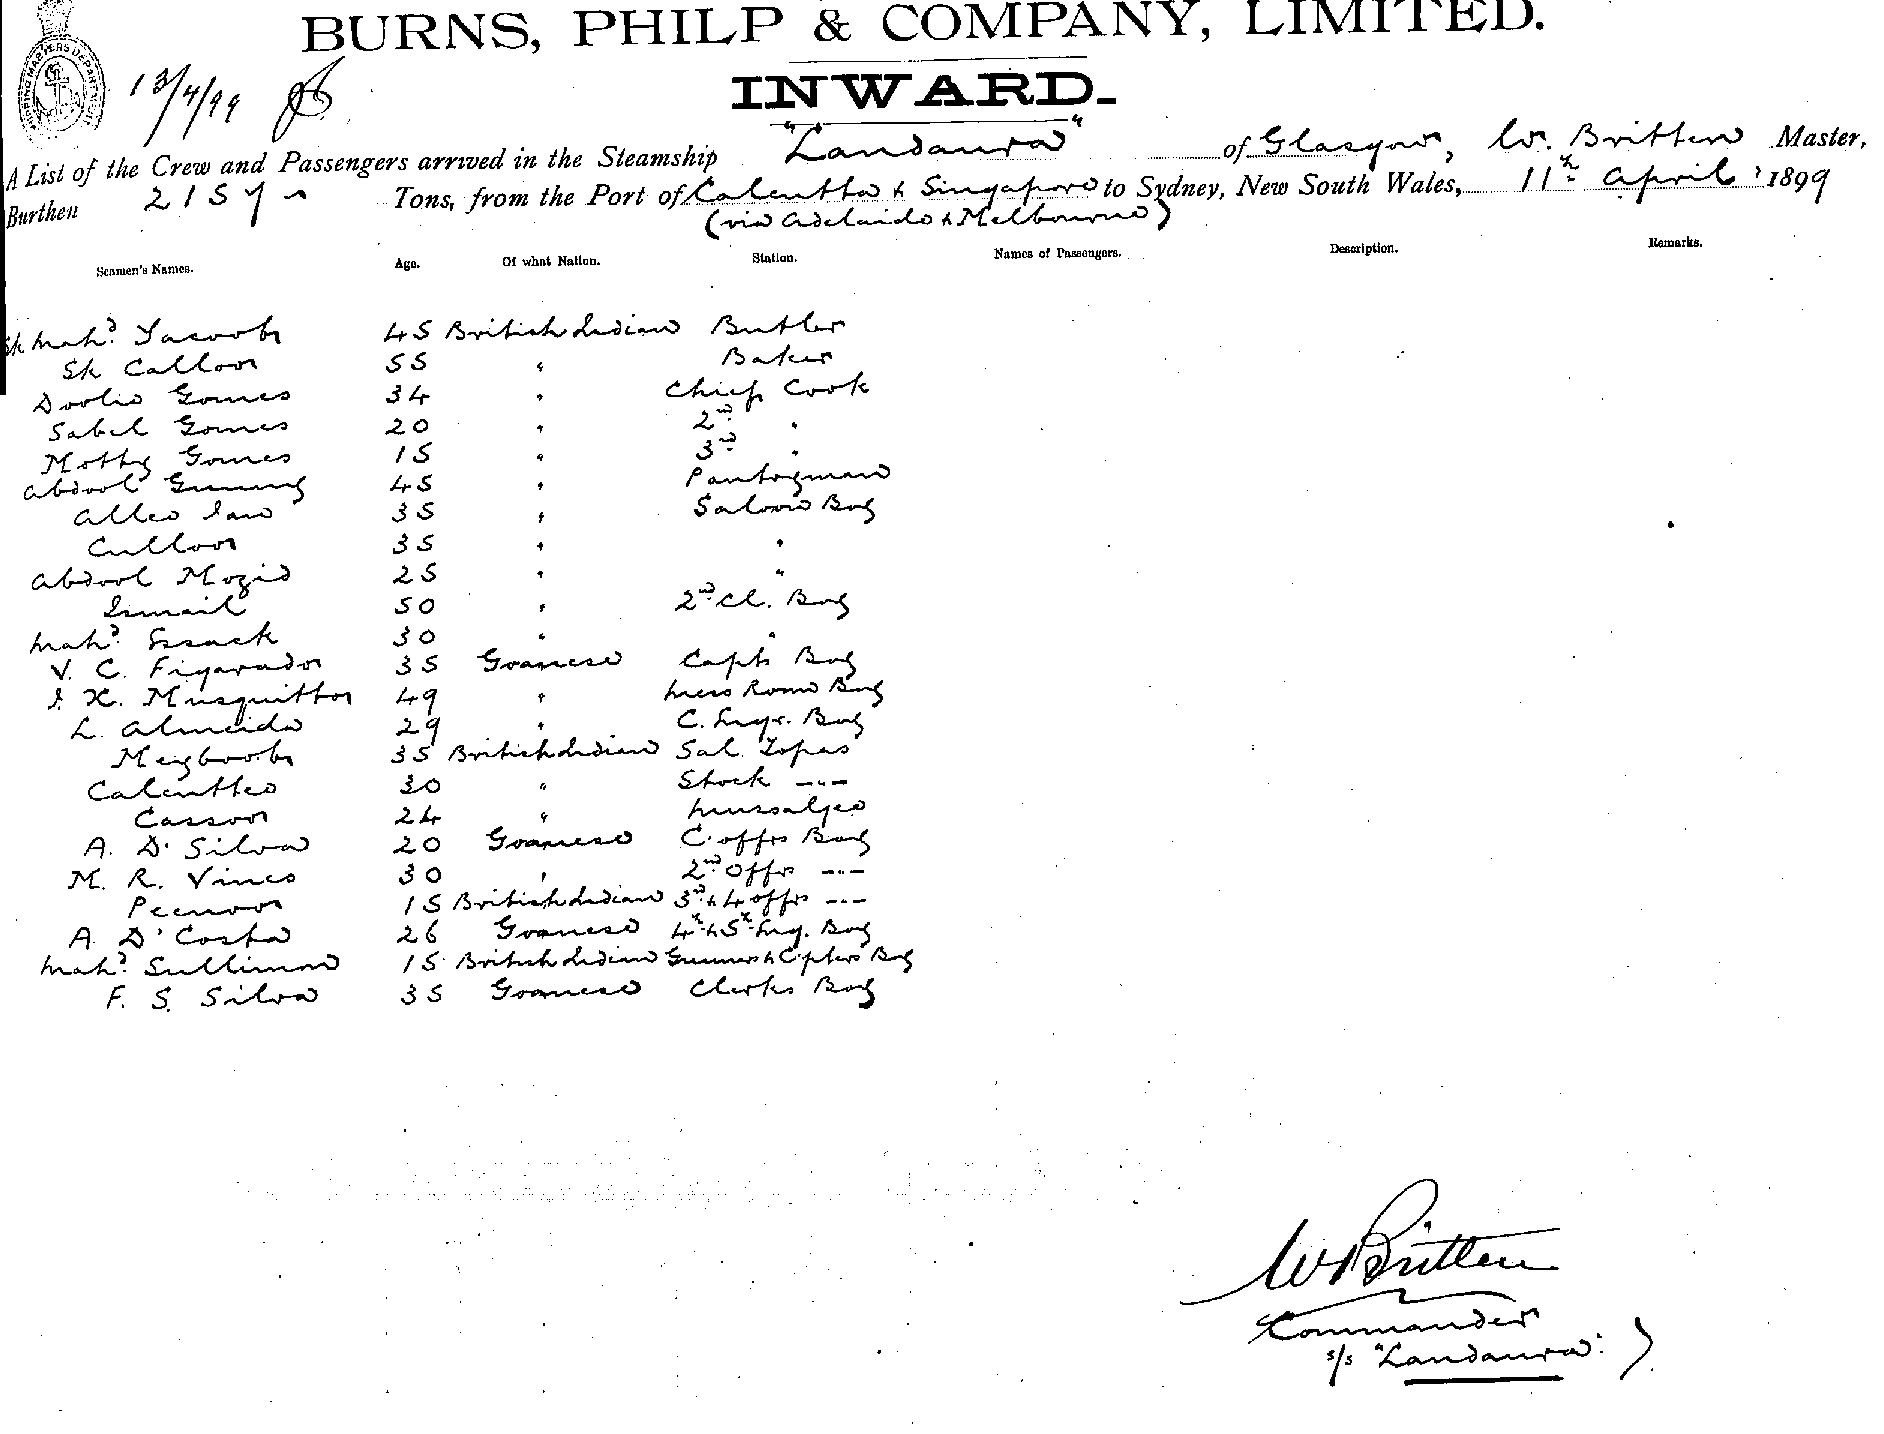 BURNS, PHILP & COMPANY, LIMITED.
INWARD.
13/4/99
A List of the Crew and Passengers arrived in the Steamship "Landaura" of Glasgow, W. Britten Master,
Burthen 2157 Tons, from the Port of Calcutta & Singapore to Sydney, New South Wales, 11th April 1899
(via Adelaide & Melbourne)
Seamen's Names. Age. Of what Nation. Station. Names of Passengers. Description. Remarks.
Sk Mahd. Yacoob 45 British Indian Butler
Sk Calloo 55 " Baker
Doolie Gomes 34 " Chief Cook
Sabel Gomes 20 " 2nd "
Motty Gomes 15 " 3rd "
Abdool Gunny 45 " Pantryman
Allee Jan 35 " Saloon Boy
Culloo 35 " "
Abdool Mozid 25 " "
Ismail 50 " 2nd Cl. Boy
Mahd. Essack 30 " "
V. C. Figarado 35 Goanese Capts Boy
J. X. Musquitto 49 " Mess Room Boy
L. Almeida 29 " C. Engr. Boy
Meyboob 35 British Indian Sal. Topas
Calcuttee 30 " Stock -"-
Cassoo 24 " Mussalgee
A. D'Silva 20 Goanese C. offrs Boy
M. R. Vines 30 " 2nd offrs -"-
Peeroo 15 British Indian 3rd & 4 offrs -"-
A. D'Costa 26 Goanese 4th & 5th Eng. Boy
Mahd. Sulliman 15 British Indian Gunners & Cpters Boy
F. S. Silva 35 Goanese Clerks Boy
W Britten
Commander
s/s "Landaura"